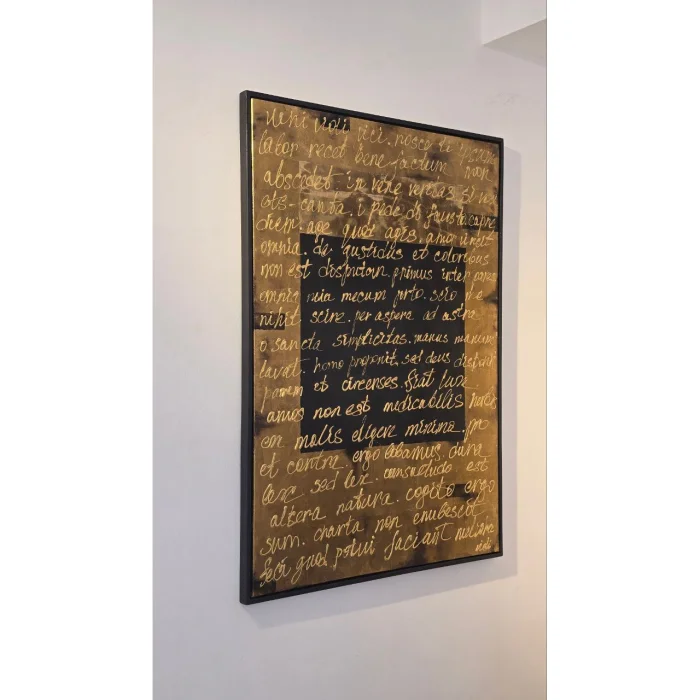 veni vidi vici. nosce te ipsum
lator recet bene factum non
abscedet. in vino veritas. si vix
ots-canta. i pede di fausto. carpe
diem. age quod agis. amor vincit
omnia. de gustidus et coloribus
non est disputan. primus inter pares
omnia mia mecum porto. scio me
nihil scire. per aspera ad astra
o sancta simplicitas. manus manum
lavat. homo proponit, sed deus disponit
panem et circenses. fiat lux.
amos non est medicabilis herbis
ex malis eligere minima. pro
et contra. ergo bibamus. dura
lex sed lex. consuetudo est
altera natura. cogito ergo
sum. charta non erubescit
feci quod potui faciant meliora